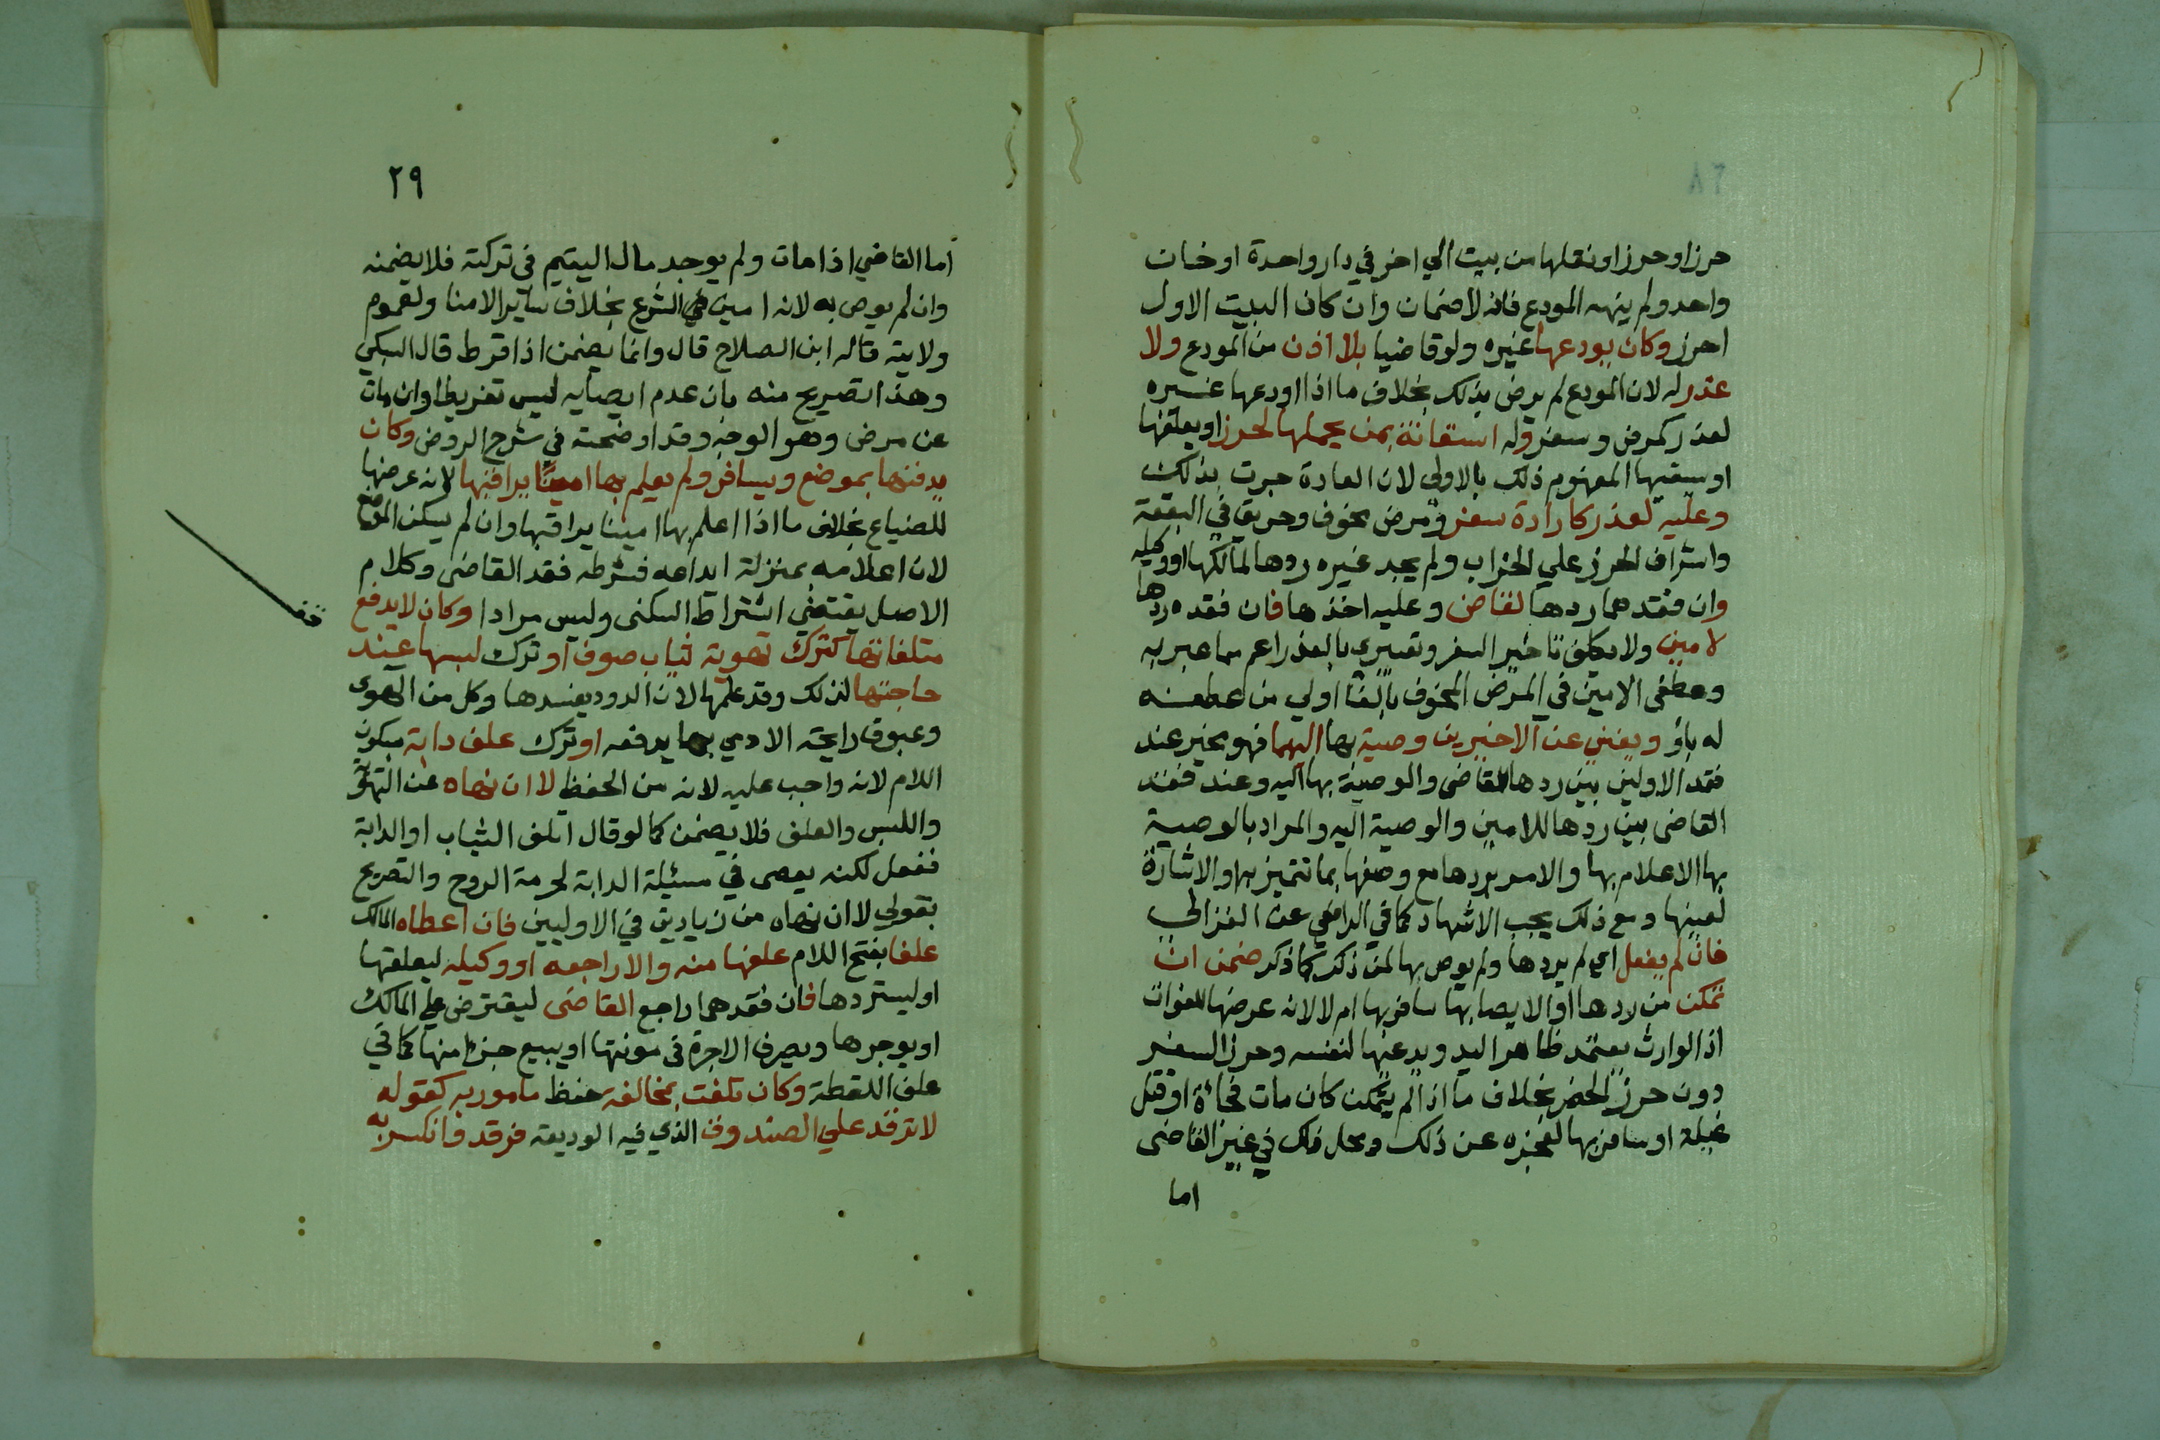 حرزا وحرزا ونقلها من بيت الي اخر في دار واحدة او خان
واحد ولم ينهه المودع فانه لا ضمان وان كان البيت الاول
احرز وكان يودعها غيره ولو قاضيا بلا اذن من المودع ولا
عذر له لان المودع لم يرض بذلك بخلاف ما اذا اودعها غيره
لعذر كمرض وسفر وله استعانة بمن يحملها لحرز او يعلفها
او يسقيها المفهوم ذلك بالاولي لان العادة جرت بذلك
وعليه لعذر كارادة سفر ومرض مخوف وحريق في البقعة
واشراف الحرز علي الخراب ولم يجد غيره ردها لمالكها او وكيله
وان فقدهما ردها لقاض وعليه اخذها فان فقده ردها
لامين ولا يكلف تاخير السفر وتعبيري بالعذر اعم مما عبر به
وعطفي الامين في المرض المخوف بالفا اولي من عطفه
له باو ويغني عن الاخيرين وصية بها اليهما فهو مخير عند
فقد الاولين بين ردها للقاضي والوصية بها اليه وعند فقد
القاضي بين ردها للامين والوصية اليه والمراد بالوصية
بها الاعلام بها والامر بردها مع وصفها بما تتميز به او الاشارة
لعينها ومع ذلك يجب الاشهاد كما في الرافعي عن الغزالي
فان لم يفعل اي لم يردها ولم يوص بها لمن ذكر كما ذكر ضمن ان
تمكن من ردها او الايصا بها سافر بها ام لا لانه عرضها للفوات
اذ الوارث يعتمد ظاهر اليد ويدعيها لنفسه وحرز السفر
دون حرز الحضر بخلاف ما اذا لم يتمكن كان مات فجاة او قتل
غيلة او سافر بها لعجزه عن ذلك ومحل ذلك في غير القاضي
اما
٢٩
اما القاضي اذا مات ولم يوجد مال اليتيم في تركته فلا يضمنه
وان لم يوص به لانه امين في الشرع بخلاف ساير الامنا ولعموم
ولايته قاله ابن الصلاح قال وانما يضمن اذا فرط قال السبكي
وهذا تصريح منه بان عدم ايصايه ليس تفريطا وان مات
عن مرض وهو الوجه وقد اوضحته في شرح الروض وكان
يدفنها بموضع ويسافر ولم يعلم بها امينا يراقبها لانه عرضها
للضياع بخلاف ما اذا اعلم بها امينا يراقبها وان لم يسكن الموضع
لان اعلامه بمنزلة ايداعه فشرطه فقد القاضي وكلام
الاصل يقتضي اشتراط السكني وليس مرادا وكان لا يدفع
متلفاتها كترك تهوية ثياب صوف او ترك لبسها عند
حاجتها لذلك وقد علمها لان الدود يفسدها وكل من الهوي
وعبوق رايحة الادمي بها يدفعه او ترك علف دابة بسكون
اللام لانه واجب عليه لانه من الحفظ لا ان نهاه عن التهوية
واللبس والعلف فلا يضمن كما لو قال اتلف الثياب او الدابة
ففعل لكنه يعصي في مسئلة الدابة لحرمة الروح والتصريح
بقولي لا ان نهاه من زيادتي في الاوليين فان اعطاه المالك
علفا بفتح اللام علفها منه والا راجعه او وكيله ليعلفها
او ليستردها فان فقدهما راجع القاضي ليقترض علي المالك
او يوجرها ويصرف الاجرة في مونتها او يبيع جزءا منها كما في
علف اللقطة وكان تلفت بمخالفة حفظ مامور به كقوله
لا ترقد علي الصندوق الذي فيه الوديعة فرقد فانكسر به